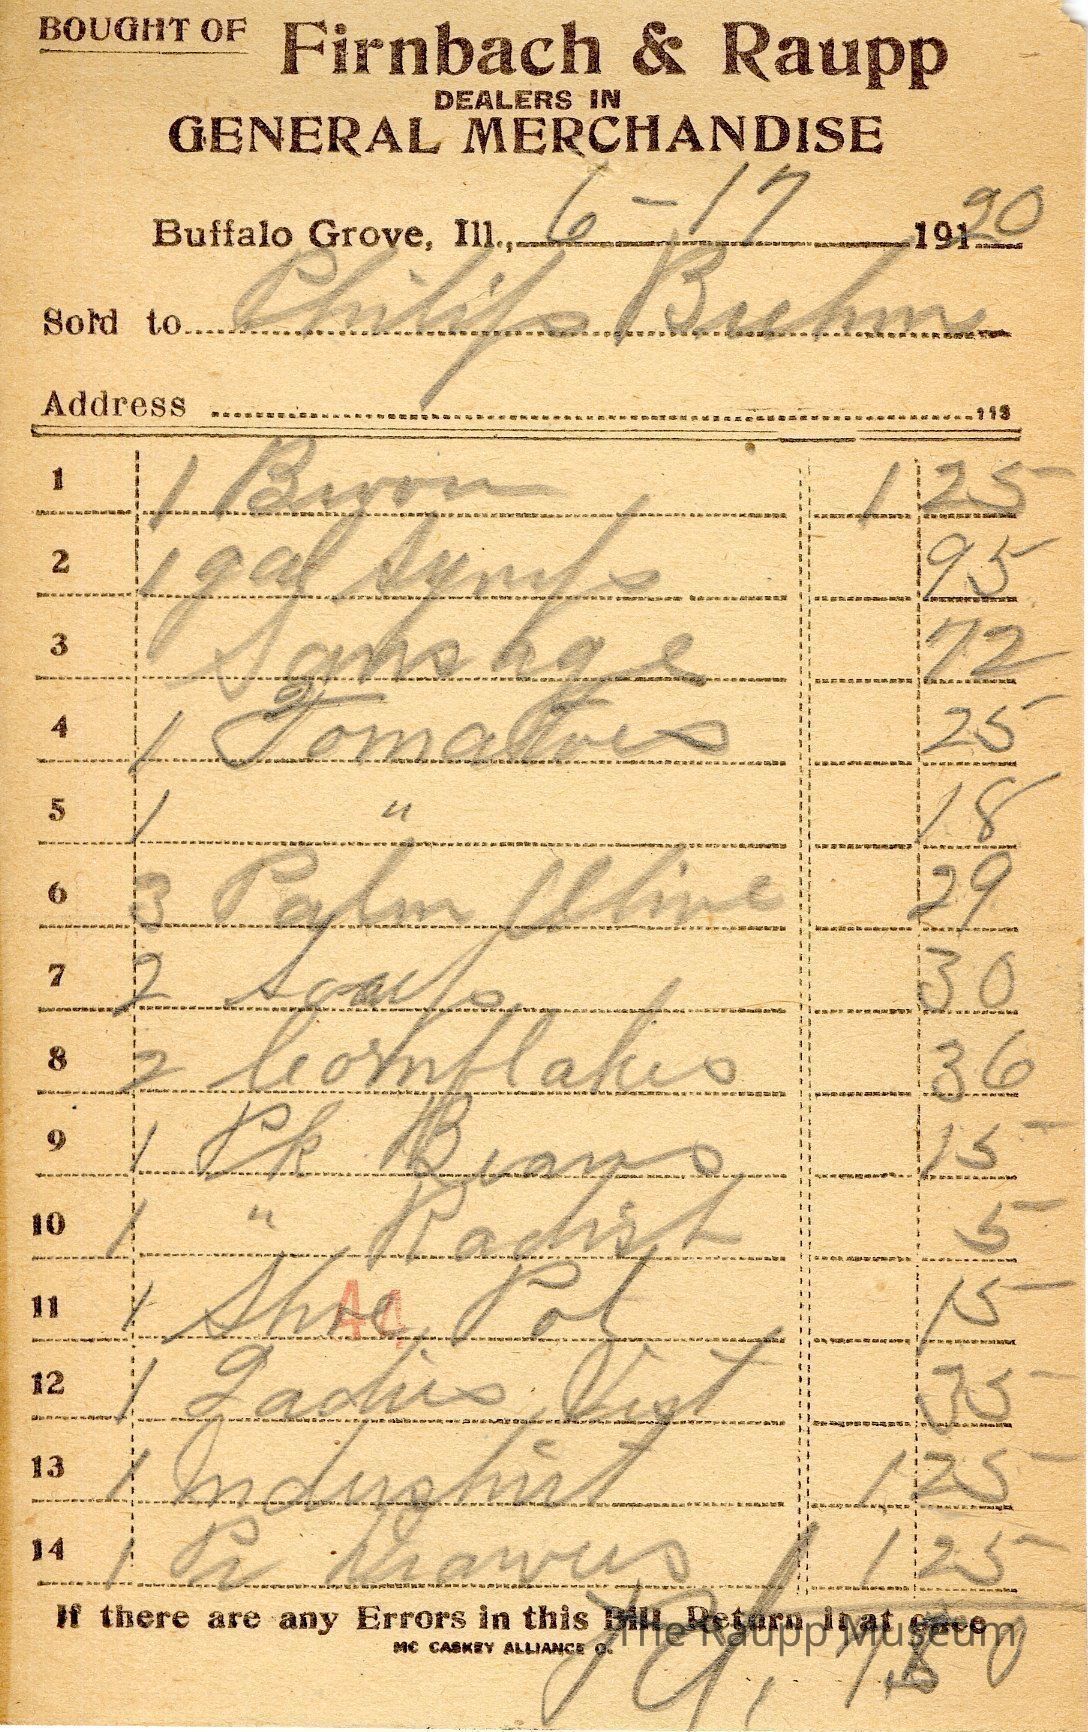 BOUGHT OF Firnbach & Raupp
DEALERS IN
GENERAL MERCHANDISE
Buffalo Grove, Ill., 6-17 19120
Sold to Philip Buehm
Address 113
1 1 Broom 1 25
2 1 gal Syrup 95
3 Sausage 72
4 1 2 Tomatoes 25
5 1 " 18
6 3 Palm Olive 29
7 2 Soap 30
8 2 Cornflakes 36
9 1 Pk Beans 15
10 1 " Radish 5
11 1 Shoe Pol 15
44
12 1 Ladies Vest 75
13 1 Undershirt 1 25
14 1 Pr Drawers 1 25
If there are any Errors in this Bill Return it at once
MC CASKEY ALLIANCE O.
The Raupp Museum